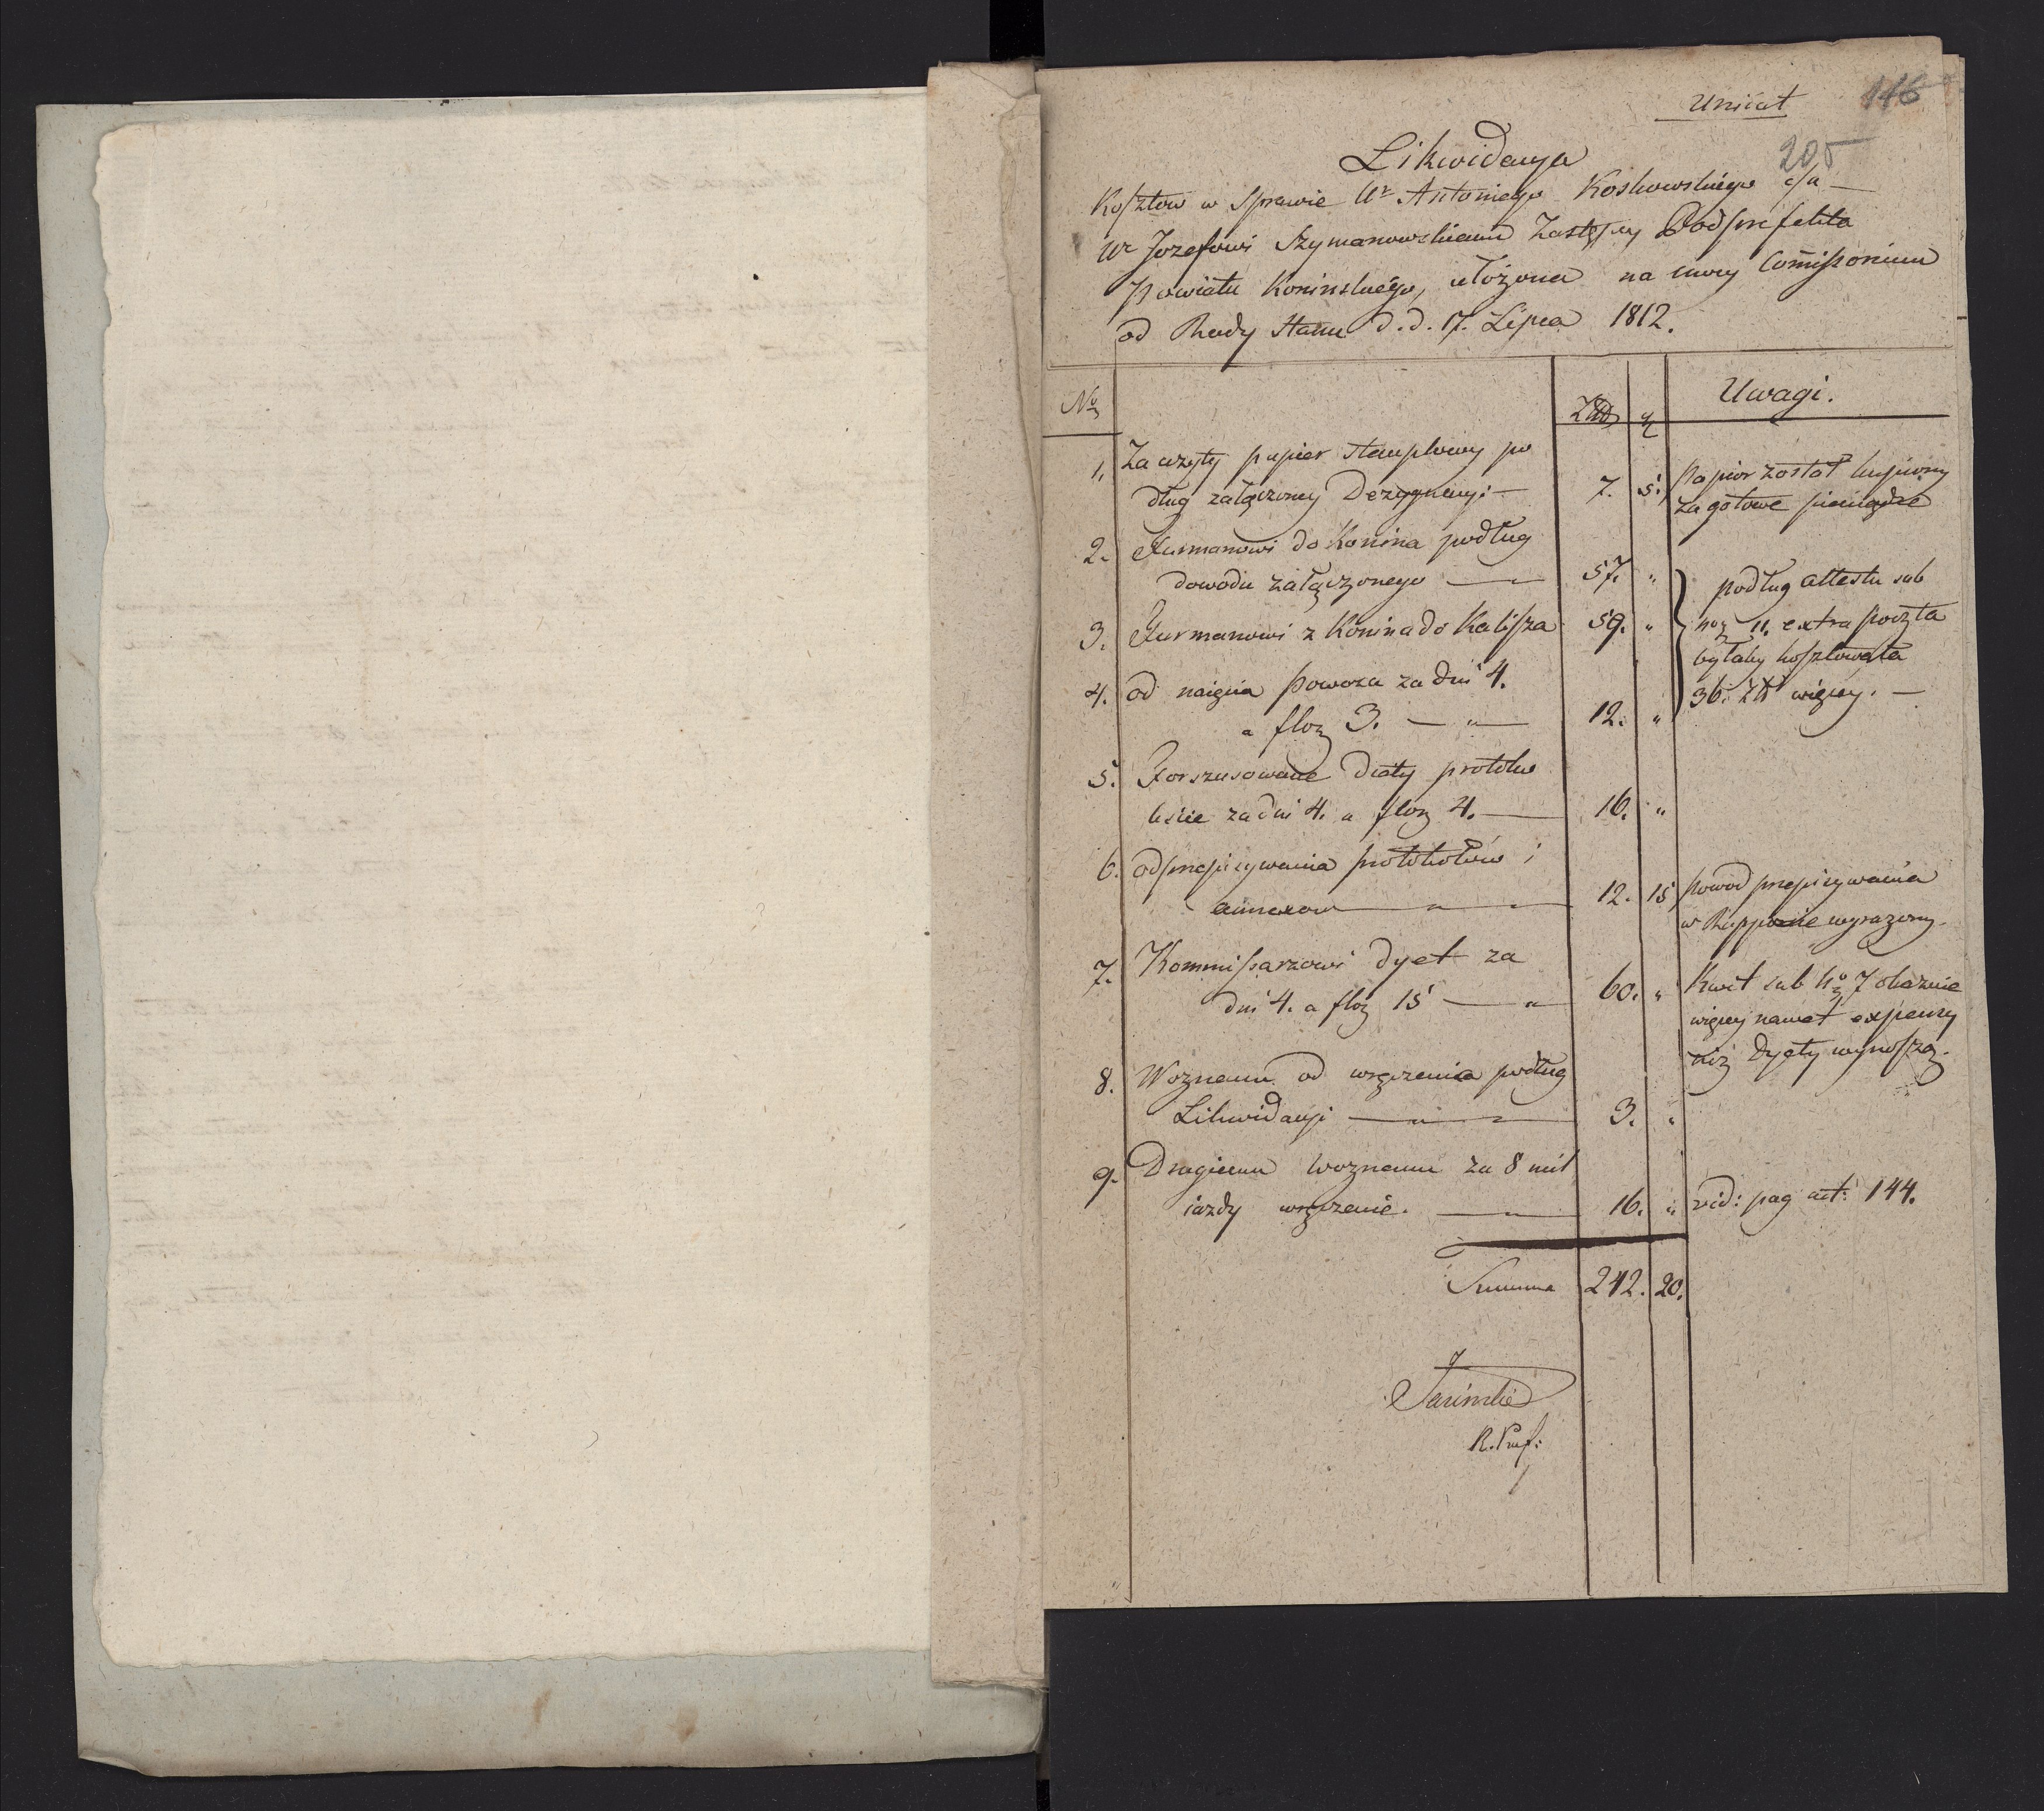 Unicat 116
205
Likwidacya
Kosztow w Sprawie Ur Antoniego Koskowskiego c/a
Ur Jozefowi Szymanowskiemu Zastępcy Podprefekta
Powiatu Koninskiego, ułożona na mocy Commissorium
od Rady Stanu d. d. 17. Lipca 1812.
No Złt gr Uwagi.
1. Za użyty papier stemplowy po
dług załączoney Dezygnacyi — 7. 5. Papier został kupiony
za gotowe pieniądze
2. Furmanowi do Konina podług
dowodu załączonego — 57. " podług attestu sub
3. Furmanowi z Konina do Kalisza 59. " no 11. extra poczta
byłaby kosztowała
4. od naięcia powoza za dni 4.
a flor 3. — " — 12. " 36. Złt więcey. —
5. Forszusowane diety protoku
liście za dni 4. a flor 4. — 16. "
6. od przepisywania protokołów i
annexow — " — " — 12. 15 powod przepisywania
w Rapporcie wyrazony.
7. Kommissarzowi dyet za
dni 4. a flor 15 — " 60. " Kwit sub No 7 okazuie
więcey nawet expensy
niż dyety wynoszą.
8. Woznemu od wręczenia podług
Likwidacyi — " — " — 3. "
9. Drugiemu woznemu za 8 mil
iazdy wręczenie. — " — 16. " vid: pag act: 144.
Summa 242. 20.
R. Pref: